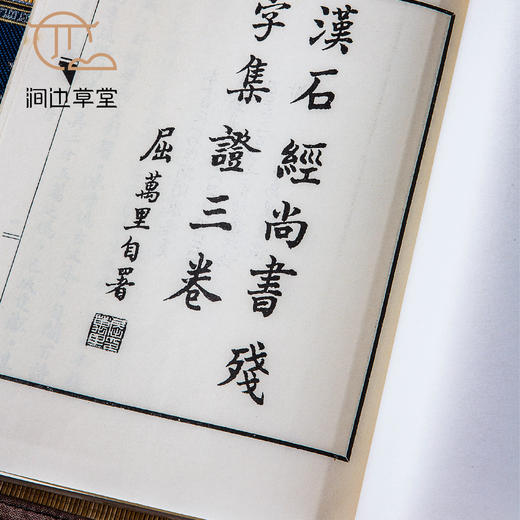 漢石經尚書殘
字集證三卷
屈萬里自署
涧边草堂